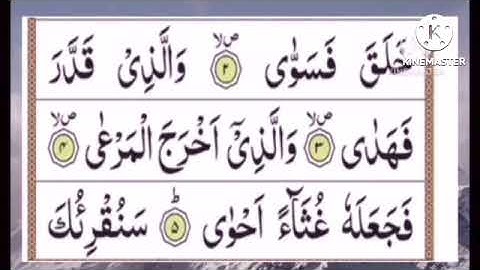 خَلَقَ فَسَوّٰى ۙ‏ ﴿۲﴾ وَالَّذِىْ قَدَّرَ
فَهَدٰى ۙ‏ ﴿۳﴾ وَالَّذِىْٓ اَخْرَجَ الْمَرْعٰى ۙ‏ ﴿۴﴾
فَجَعَلَهٗ غُثَآءً اَحْوٰى ؕ‏ ﴿۵﴾ سَنُقْرِئُكَ
KINEMASTER